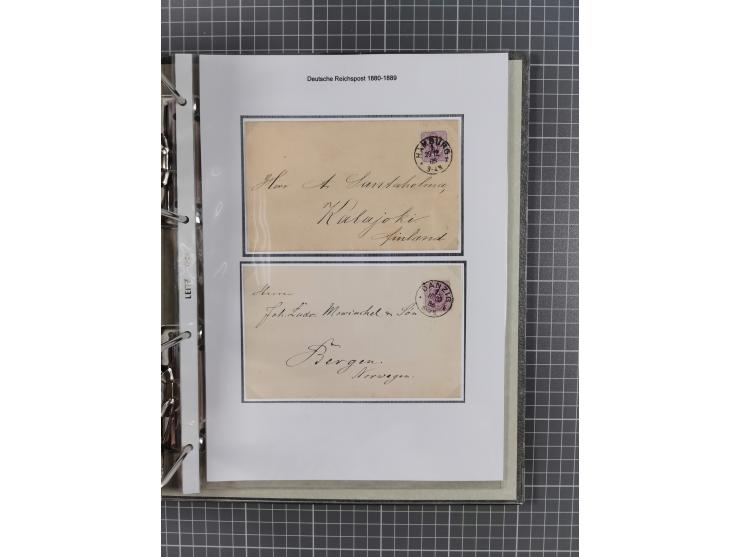 Deutsche Reichspost 1880-1889
HAMBURG
1
29 12
85
Herr A. Santaholma,
Kalajoki
finland
DANZIG
1
Herrn
Joh. Ludw. Mowinckel & Søn
Bergen.
Norwegen.
LEITZ